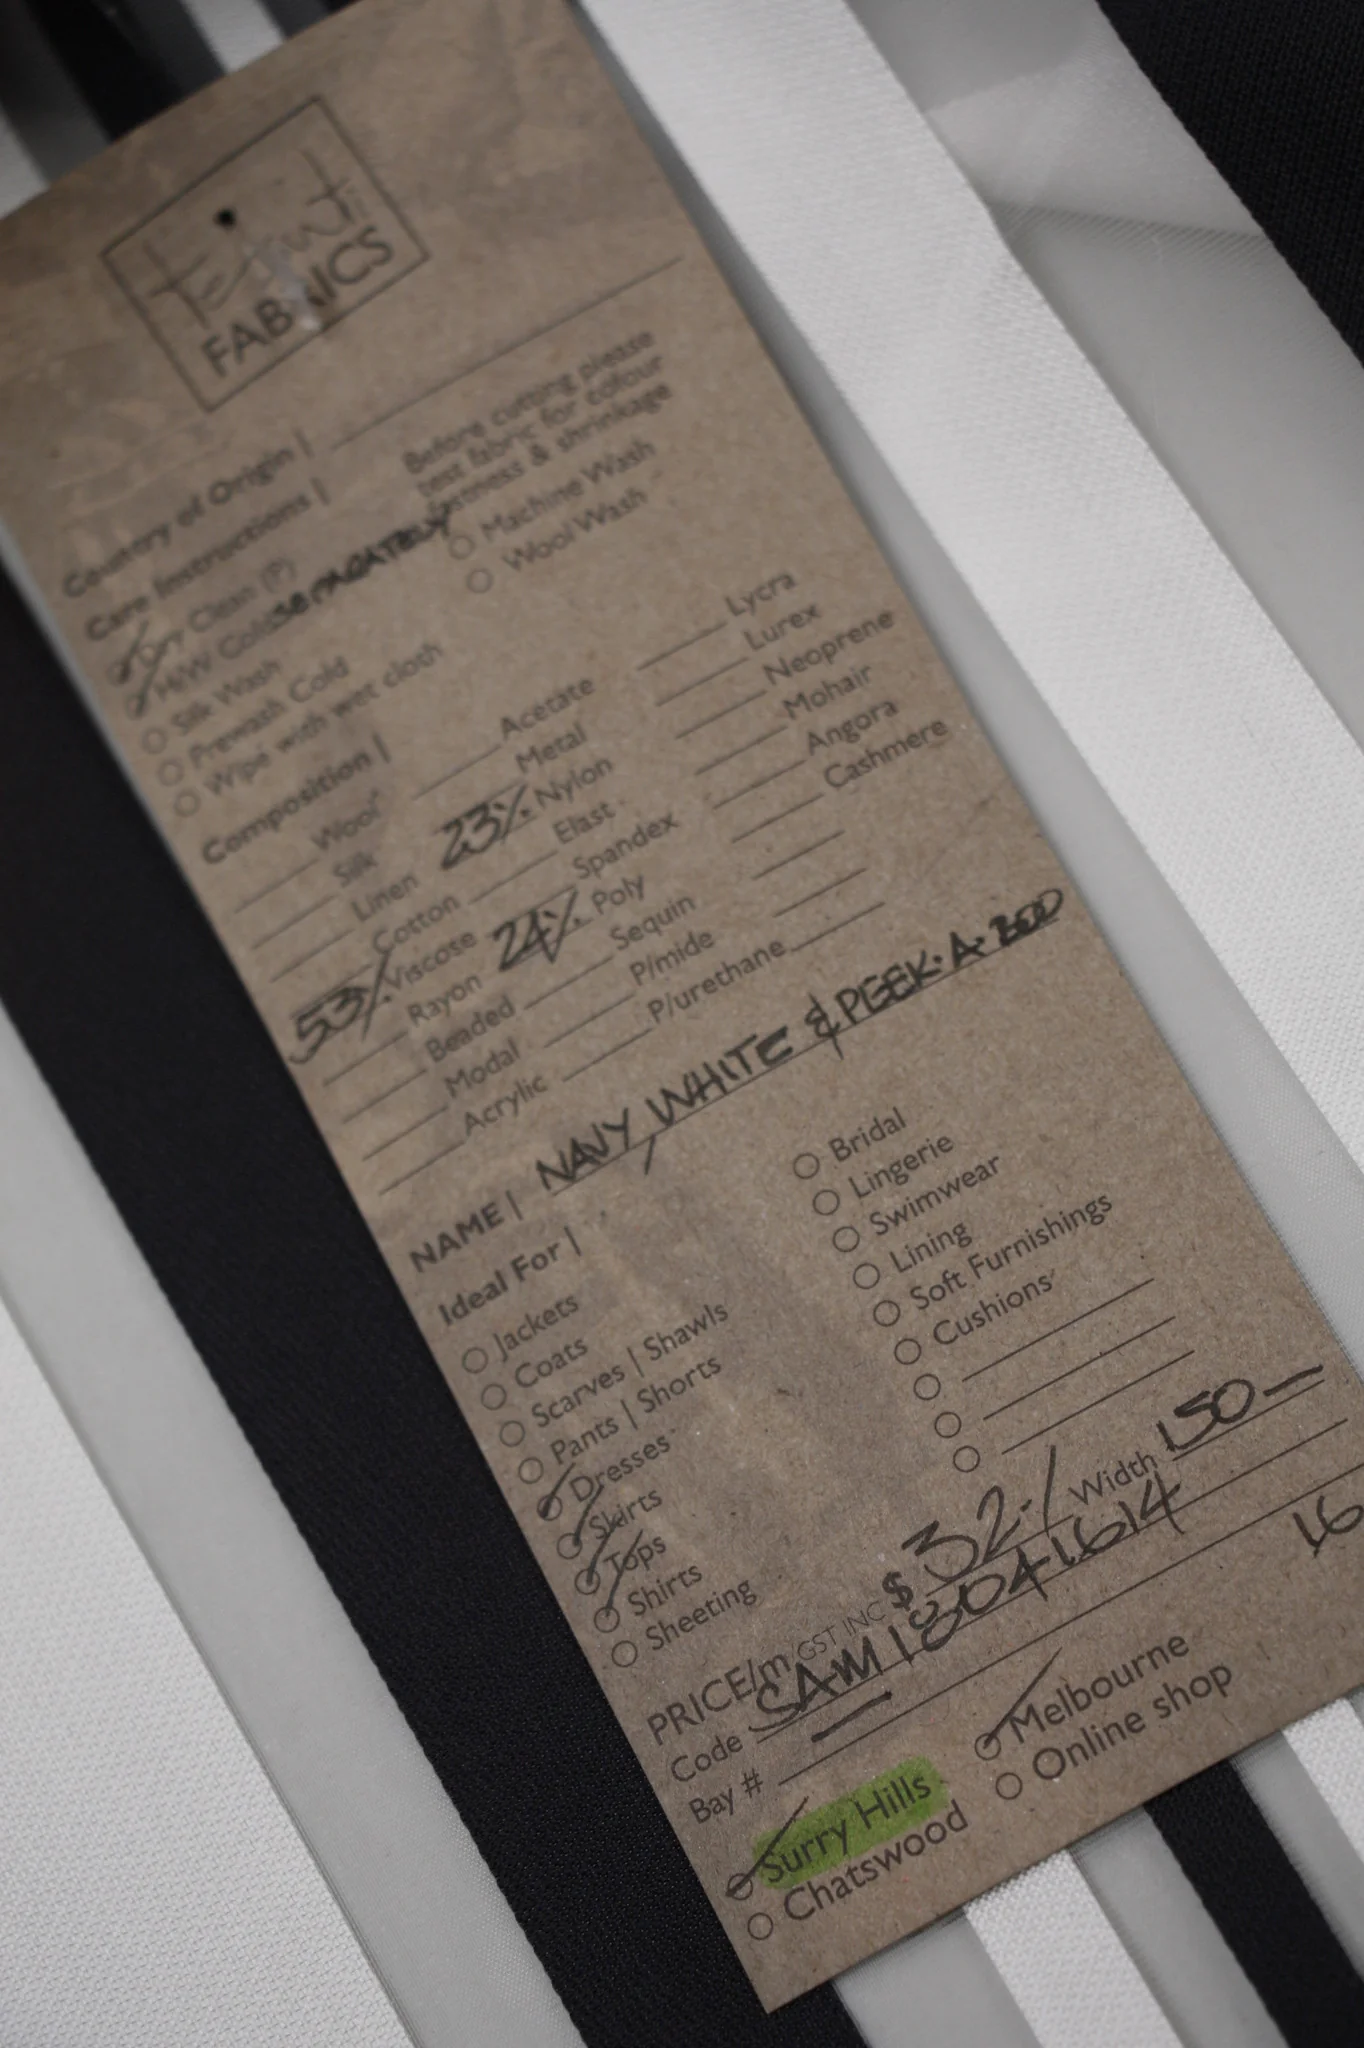 FABRICS
Country of Origin |
Care Instructions | Before cutting please
test fabric for colour
fastness & shrinkage
Dry Clean (P) Machine Wash
H/W Cold SEPARATELY Wool Wash
Silk Wash
Prewash Cold
Wipe with wet cloth
Composition |
Wool Acetate Lycra
Silk Metal Lurex
Linen 23% Nylon Neoprene
Cotton Elast. Mohair
53% Viscose Spandex Angora
Rayon 24% Poly Cashmere
Beaded Sequin
Modal P/mide
Acrylic P/urethane
NAME | NAVY, WHITE & PEEK·A·BOO
Ideal For |
Jackets Bridal
Coats Lingerie
Scarves | Shawls Swimwear
Pants | Shorts Lining
Dresses Soft Furnishings
Skirts Cushions
Tops
Shirts
Sheeting
PRICE/m GST INC $ 32·/ Width 150
Code SAM18041614
Bay # 16
Surry Hills Melbourne
Chatswood Online shop